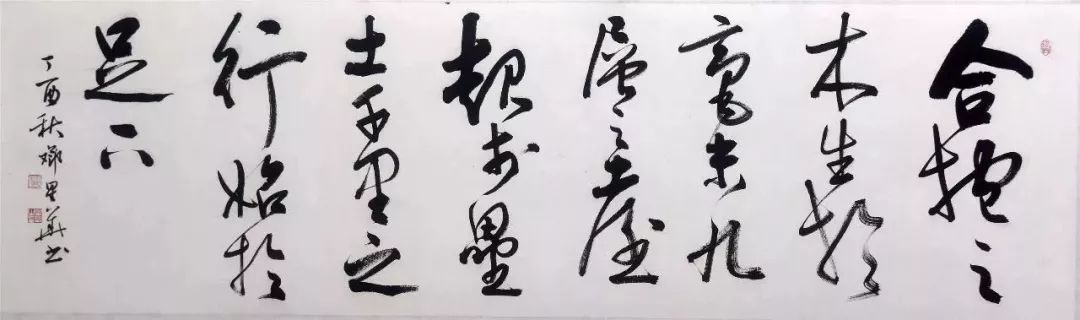 合抱之
木生於
毫末九
層之臺
起於壘
土千里之
行始於
足下
丁酉秋